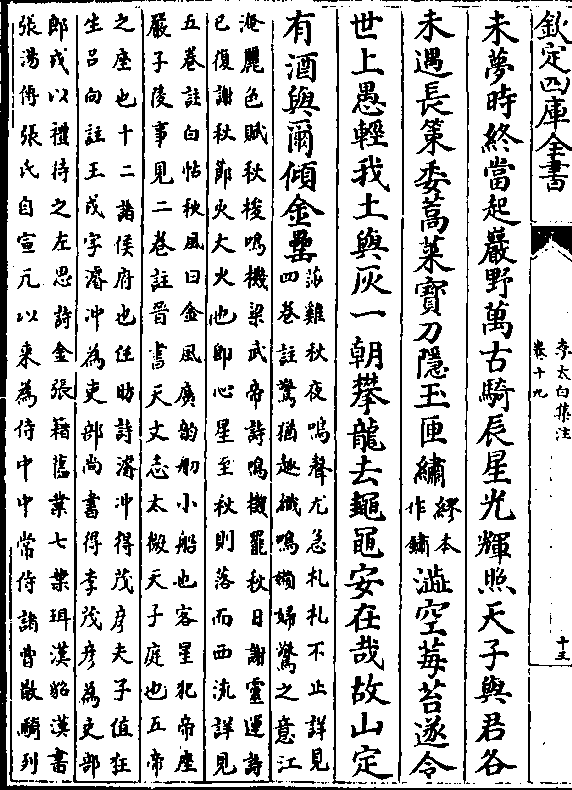 欽定四庫全書
李太白集注
卷十九
十五
未夢時終當起巖野萬古騎辰星光輝照天子與君各
未遇長策委蒿萊寶刀隱玉匣繡繆本作鏽澁空莓苔遂令
世上愚輕我土與灰一朝攀龍去鼃黽安在哉故山定
有酒與爾傾金罍
莎雞秋夜鳴聲尤急札札不止詳見
四卷註驚猶趣織鳴嬾婦驚之意江
淹麗色賦秋梭鳴機梁武帝詩鳴機罷秋日謝靈運詩
已復謝秋節火大火也即心星至秋則落而西流詳見
五卷註白帖秋風曰金風廣韵舠小船也客星犯帝座
嚴子陵事見二卷註晉書天文志太微天子庭也五帝
之座也十二諸侯府也任昉詩濬冲得茂彦夫子值狂
生吕向註王戎字濬冲為吏部尚書得李茂彦為吏部
郎戎以禮待之左思詩金張藉舊業七葉珥漢貂漢書
張湯傳張氏自宣元以來為侍中中常侍諸曹散騎列